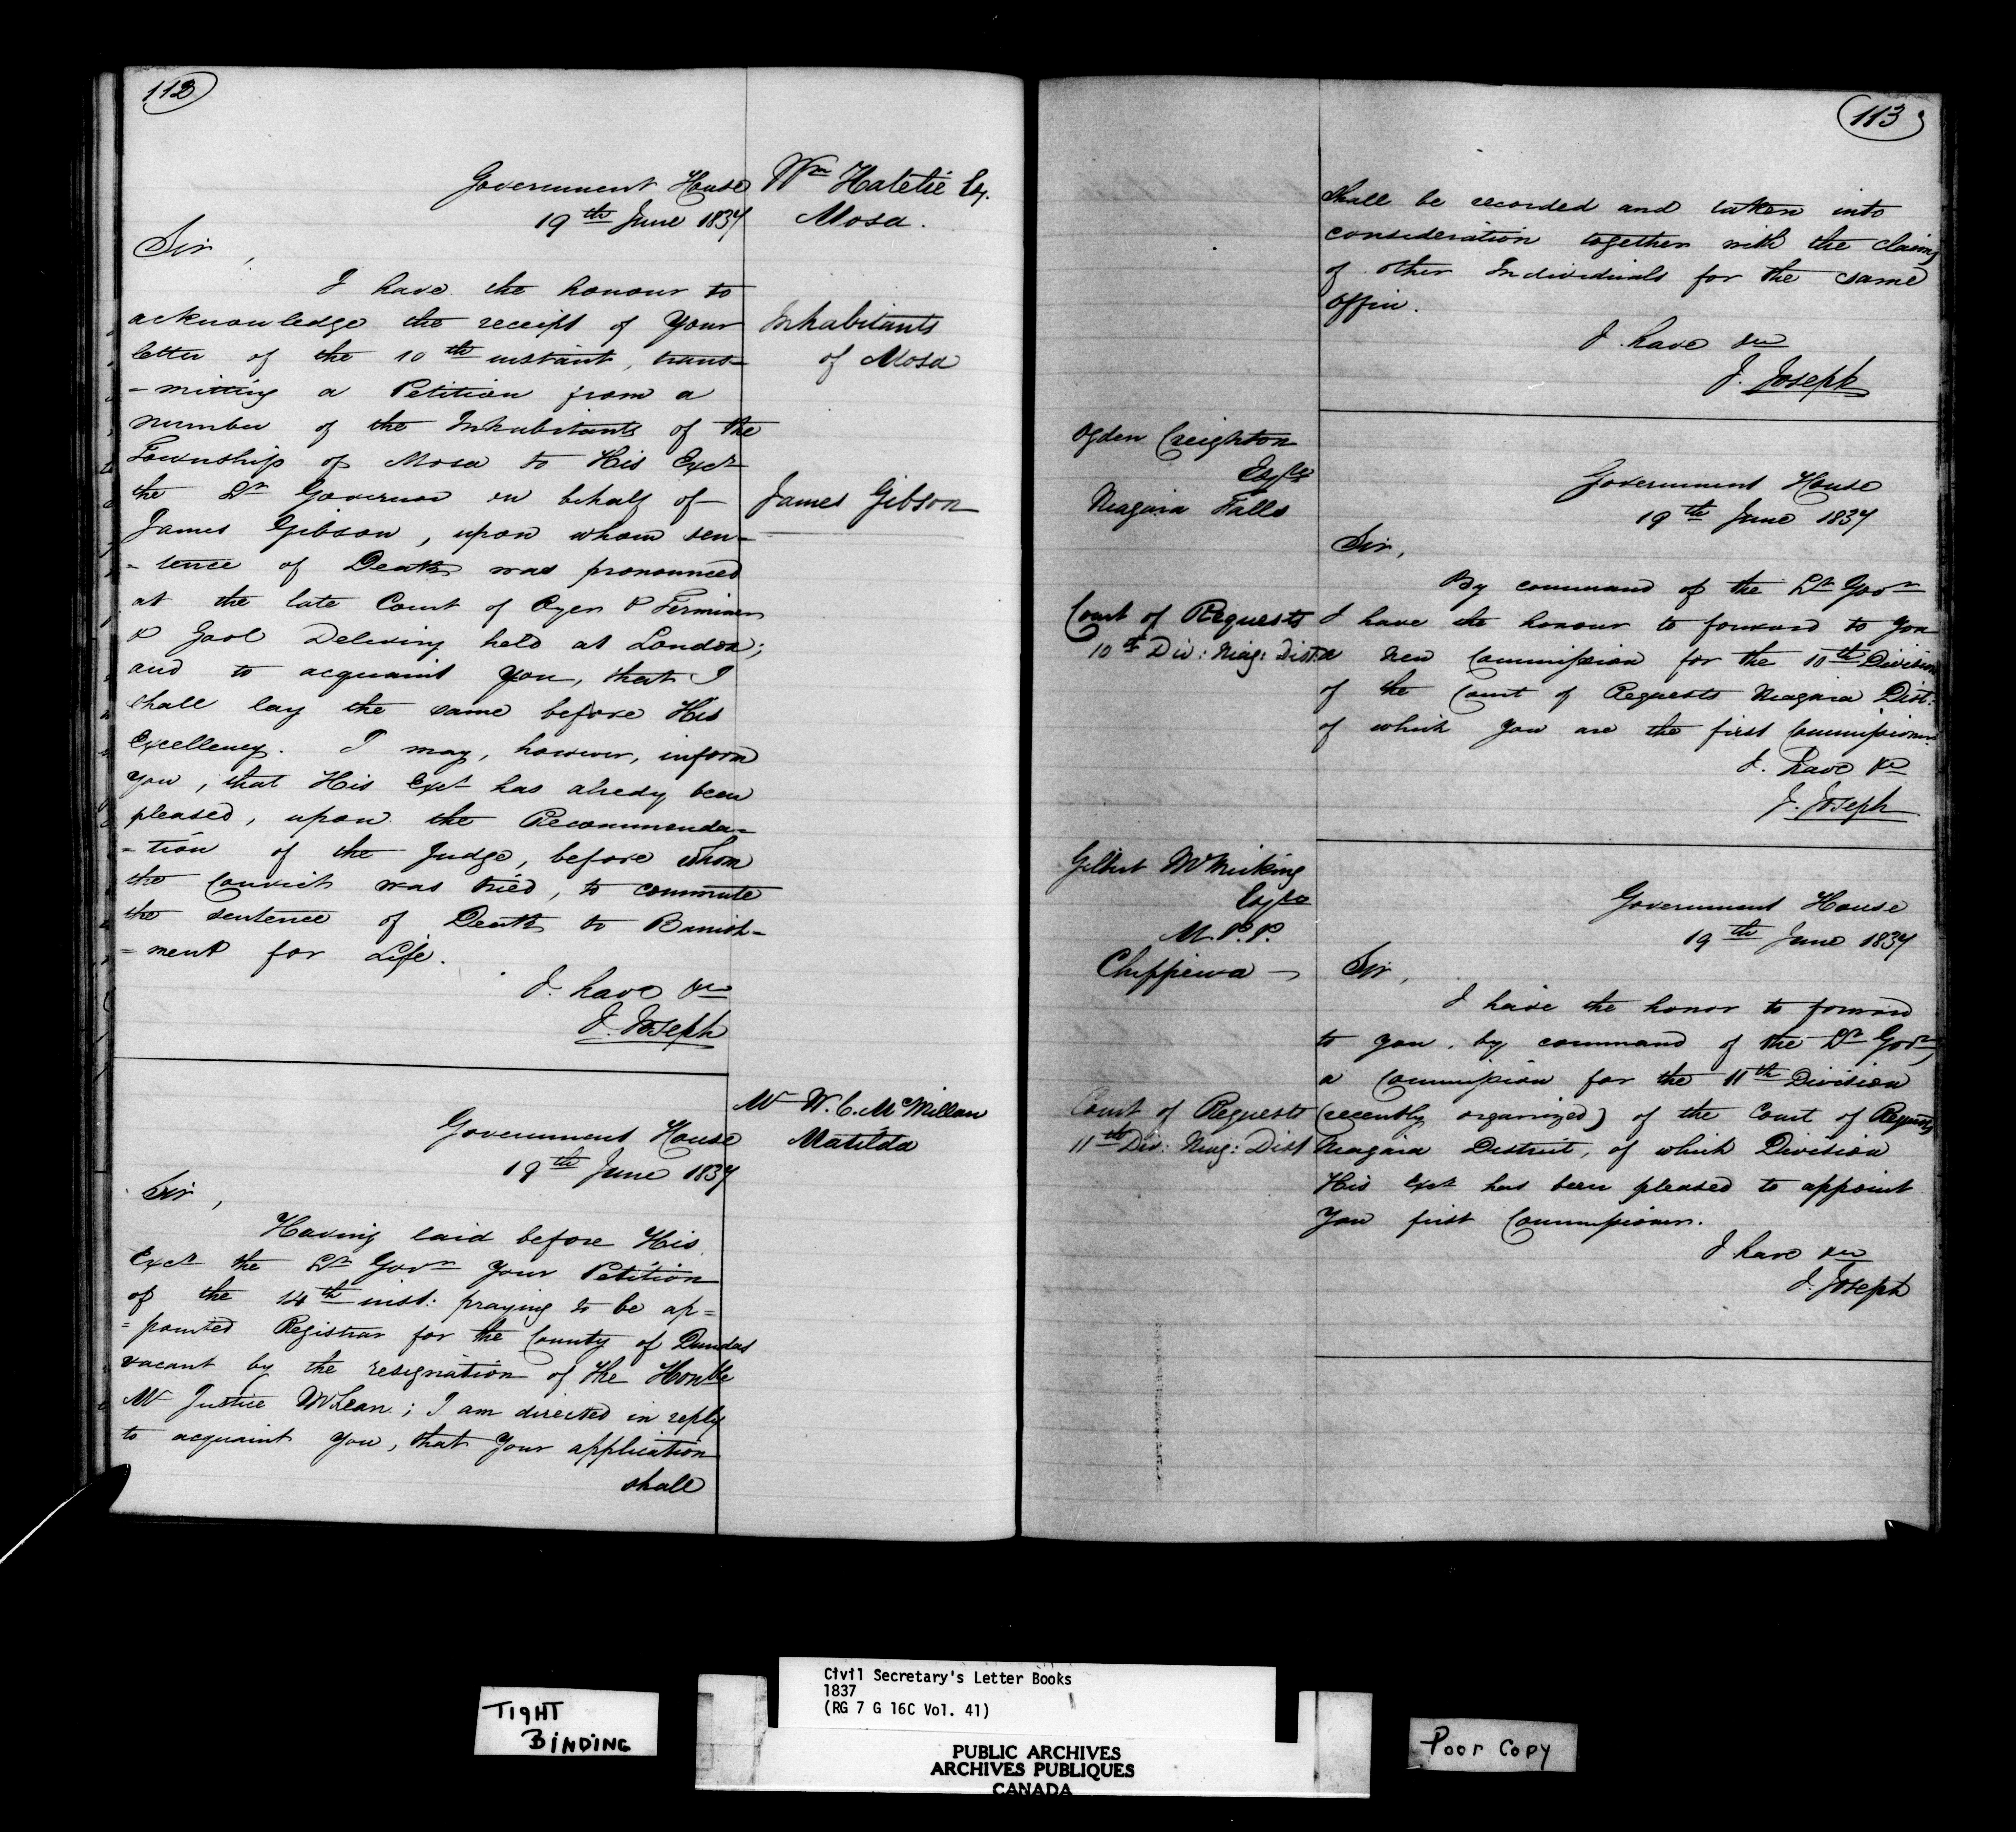 112
Government House
19th June 1837
Wm Hatelie Esq.
Mosa.
Sir,
I have the honour to
acknowledge the receipt of Your
letter of the 10th instant, trans-
-mitting a Petition from a
number of the Inhabitants of the
Township of Mosa to His Excy
the Lt Governor in behalf of
James Gibson, upon whom sen-
-tence of Death was pronounced
at the late Court of Oyer & Terminer
& Gaol Delivery held at London;
and to acquaint you, that I
shall lay the same before His
Excellency. I may, however, inform
you, that His Excy has alredy been
pleased, upon the Recommenda-
-tion of the Judge, before whom
the Convict was tried, to commute
the sentence of Death to Banish-
-ment for Life.
I have &c
J. Joseph
Inhabitants
of Mosa
James Gibson
Mr W. C. McMillan
Matilda
Government House
19th June 1837
Sir,
Having laid before His
Excy the Lt Govr Your Petition
of the 14th inst: praying to be ap=
=pointed Registrar for the County of Dundas
vacant by the resignation of the Honble
Mr Justice McLean; I am directed in reply
to acquaint You, that Your application
shall
113
shall be recorded and taken into
consideration together with the claims
of other Individuals for the same
Office.
I have &c
J. Joseph
Ogden Creighton
Esqre
Niagara Falls
Government House
19th June 1837
Sir,
By command of the Lt Govr
I have the honour to forward to you
a new Commission for the 10th Division
of the Court of Requests Niagara Dist:
of which you are the first Commissioner.
I have &c
J. Joseph
Court of Requests
10th Div: Niag: Dist:
Gilbert McMicking
Esqre
M.P.P.
Chippewa
Government House
19th June 1837
Sir,
I have the honor to forward
to you, by command of the Lt Govr,
a Commission for the 11th Division
(recently organized) of the Court of Requests
Niagara District, of which Division
His Excy has been pleased to appoint
You first Commissioner.
I have &c
J. Joseph
Court of Requests
11th Div: Niag: Dist
TIGHT
BINDING
Civil Secretary's Letter Books
1837
(RG 7 G 16C Vol. 41)
PUBLIC ARCHIVES
ARCHIVES PUBLIQUES
CANADA
Poor Copy